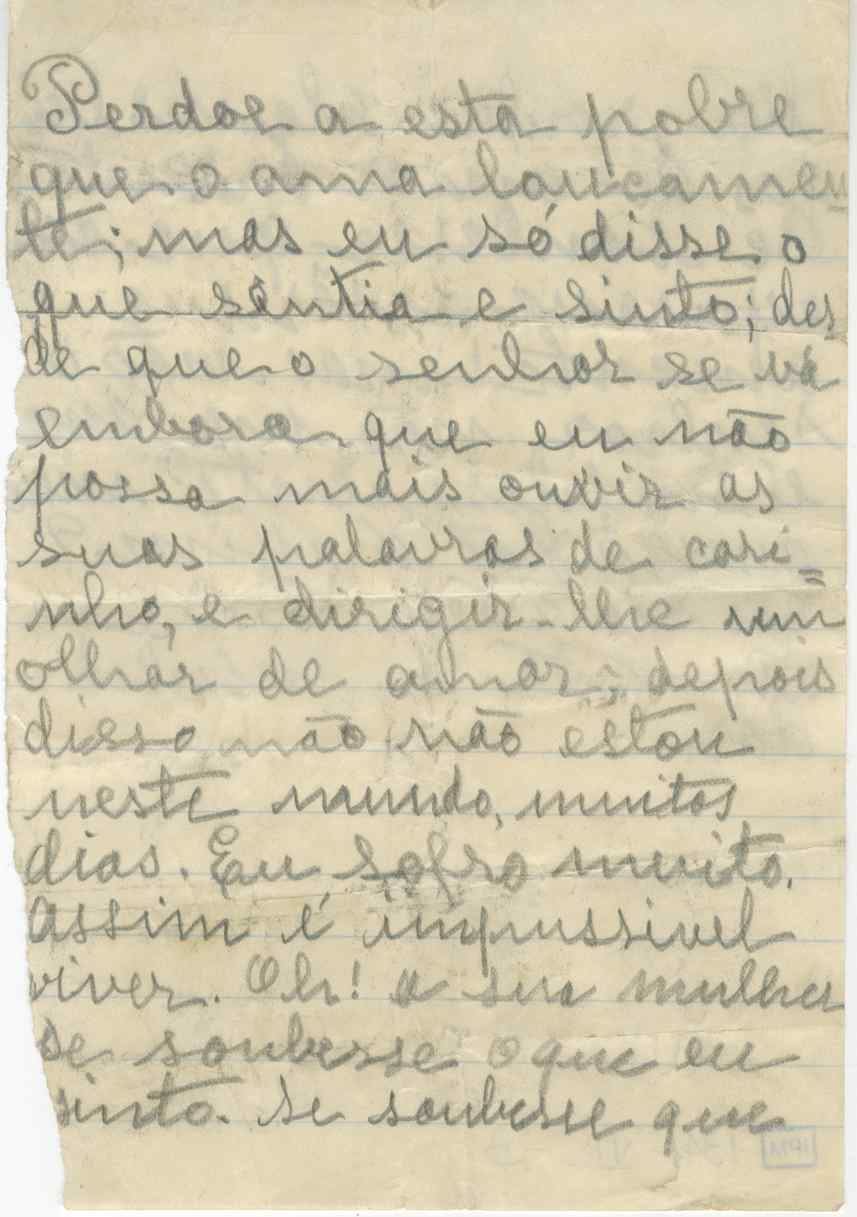 Perdoe a esta pobre
que o ama loucamen
te; mas eu só disse o
que sentia e sinto; des
de que o senhor se vá
embora que eu não
possa mais ouvir as
suas palavras de cari=
nho, e dirigir-lhe um
olhar de amor; depois
disso não não estou
neste mundo, muitos
dias. Eu sofro muito.
Assim é impussivel
viver. Oh! a sua mulher
se soubesse o que eu
sinto. Se soubesse que
IPM